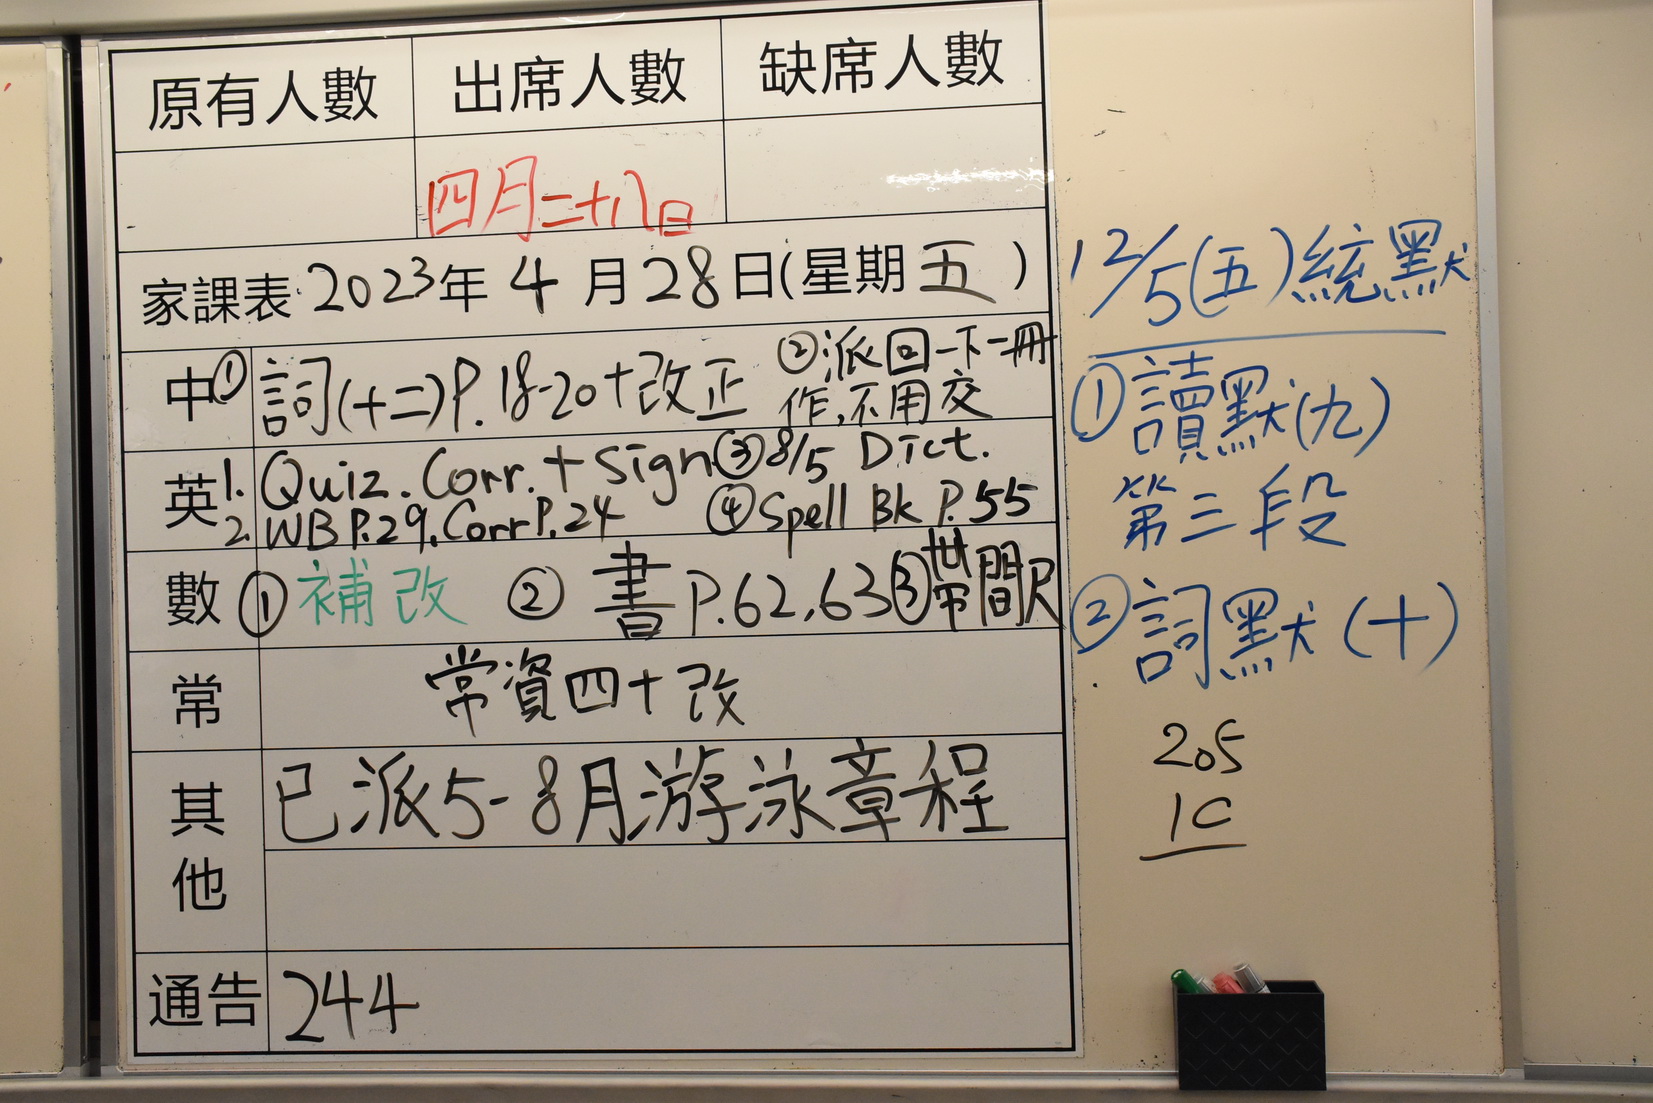 原有人數 出席人數 缺席人數
四月二十八日
家課表 2023年 4 月 28 日(星期 五 )
中 ① 詞(十二)P.18-20+改正 ②派回一下一冊
作,不用交
英 1. Quiz.Corr.+Sign ③8/5 Dict.
2. WB P.29.Corr P.24 ④Spell Bk P.55
數 ① 補改 ② 書 P.62,63 ③帶間尺
常 常資四+改
其他 已派5-8月游泳章程
通告 244
12/5(五)統默
①讀默(九)
第三段
②詞默(十)
205
1C